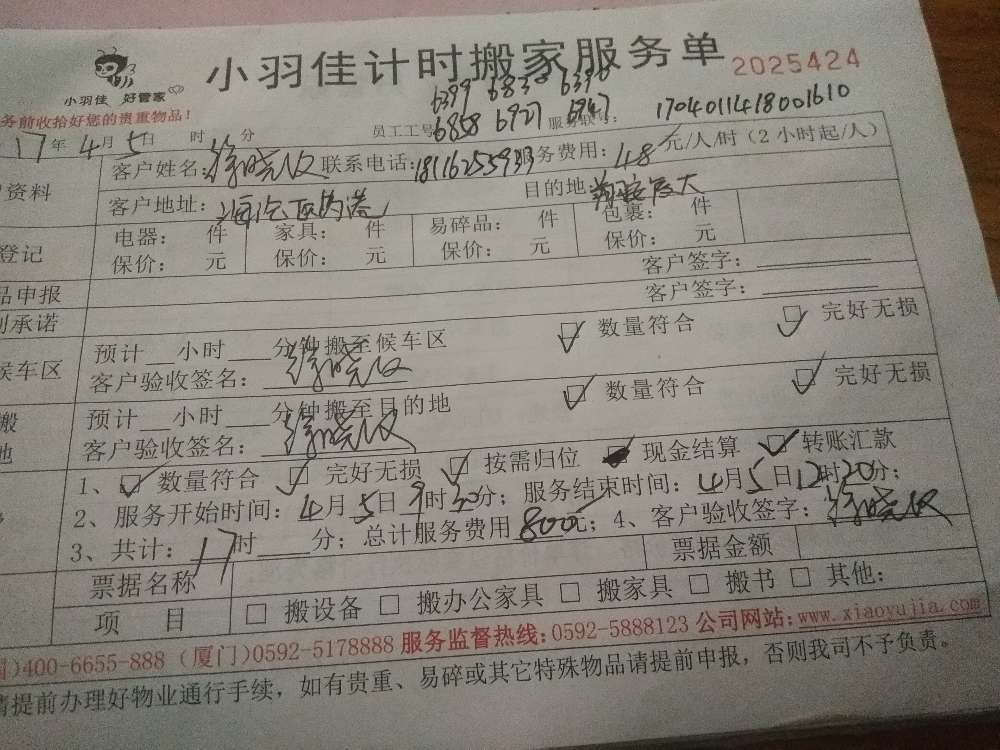 小羽佳计时搬家服务单 2025424
小羽佳 好管家
务前收拾好您的贵重物品!
6399 6830 6396
员工工号 6858 6927 6947 服务联 1704011418001610
17年4月5日 时 分
资料 客户姓名: 徐晓 联系电话: 服务费用: 48 元/人/时(2小时起/人)
客户地址: 目的地:
登记 电器: 件 家具: 件 易碎品: 件 包裹: 件
保价: 元 保价: 元 保价: 元 保价: 元
客户签字:
品申报 客户签字:
别承诺
候车区 预计 小时 分钟搬至候车区 数量符合 完好无损
客户验收签名: 徐晓
搬 预计 小时 分钟搬至目的地 数量符合 完好无损
地 客户验收签名: 徐晓
1、 数量符合 完好无损 按需归位 现金结算 转账汇款
2、服务开始时间: 4月5日9时30分; 服务结束时间: 4月5日12时20分;
3、共计: 17时 分; 总计服务费用 800元; 4、客户验收签字: 徐晓
票据名称 票据金额
项 目 □ 搬设备 □ 搬办公家具 □ 搬家具 □ 搬书 □ 其他:
)400-6655-888 (厦门)0592-5178888 服务监督热线:0592-5888123 公司网站:www.xiaoyujia.com
请提前办理好物业通行手续,如有贵重、易碎或其它特殊物品请提前申报,否则我司不予负责。